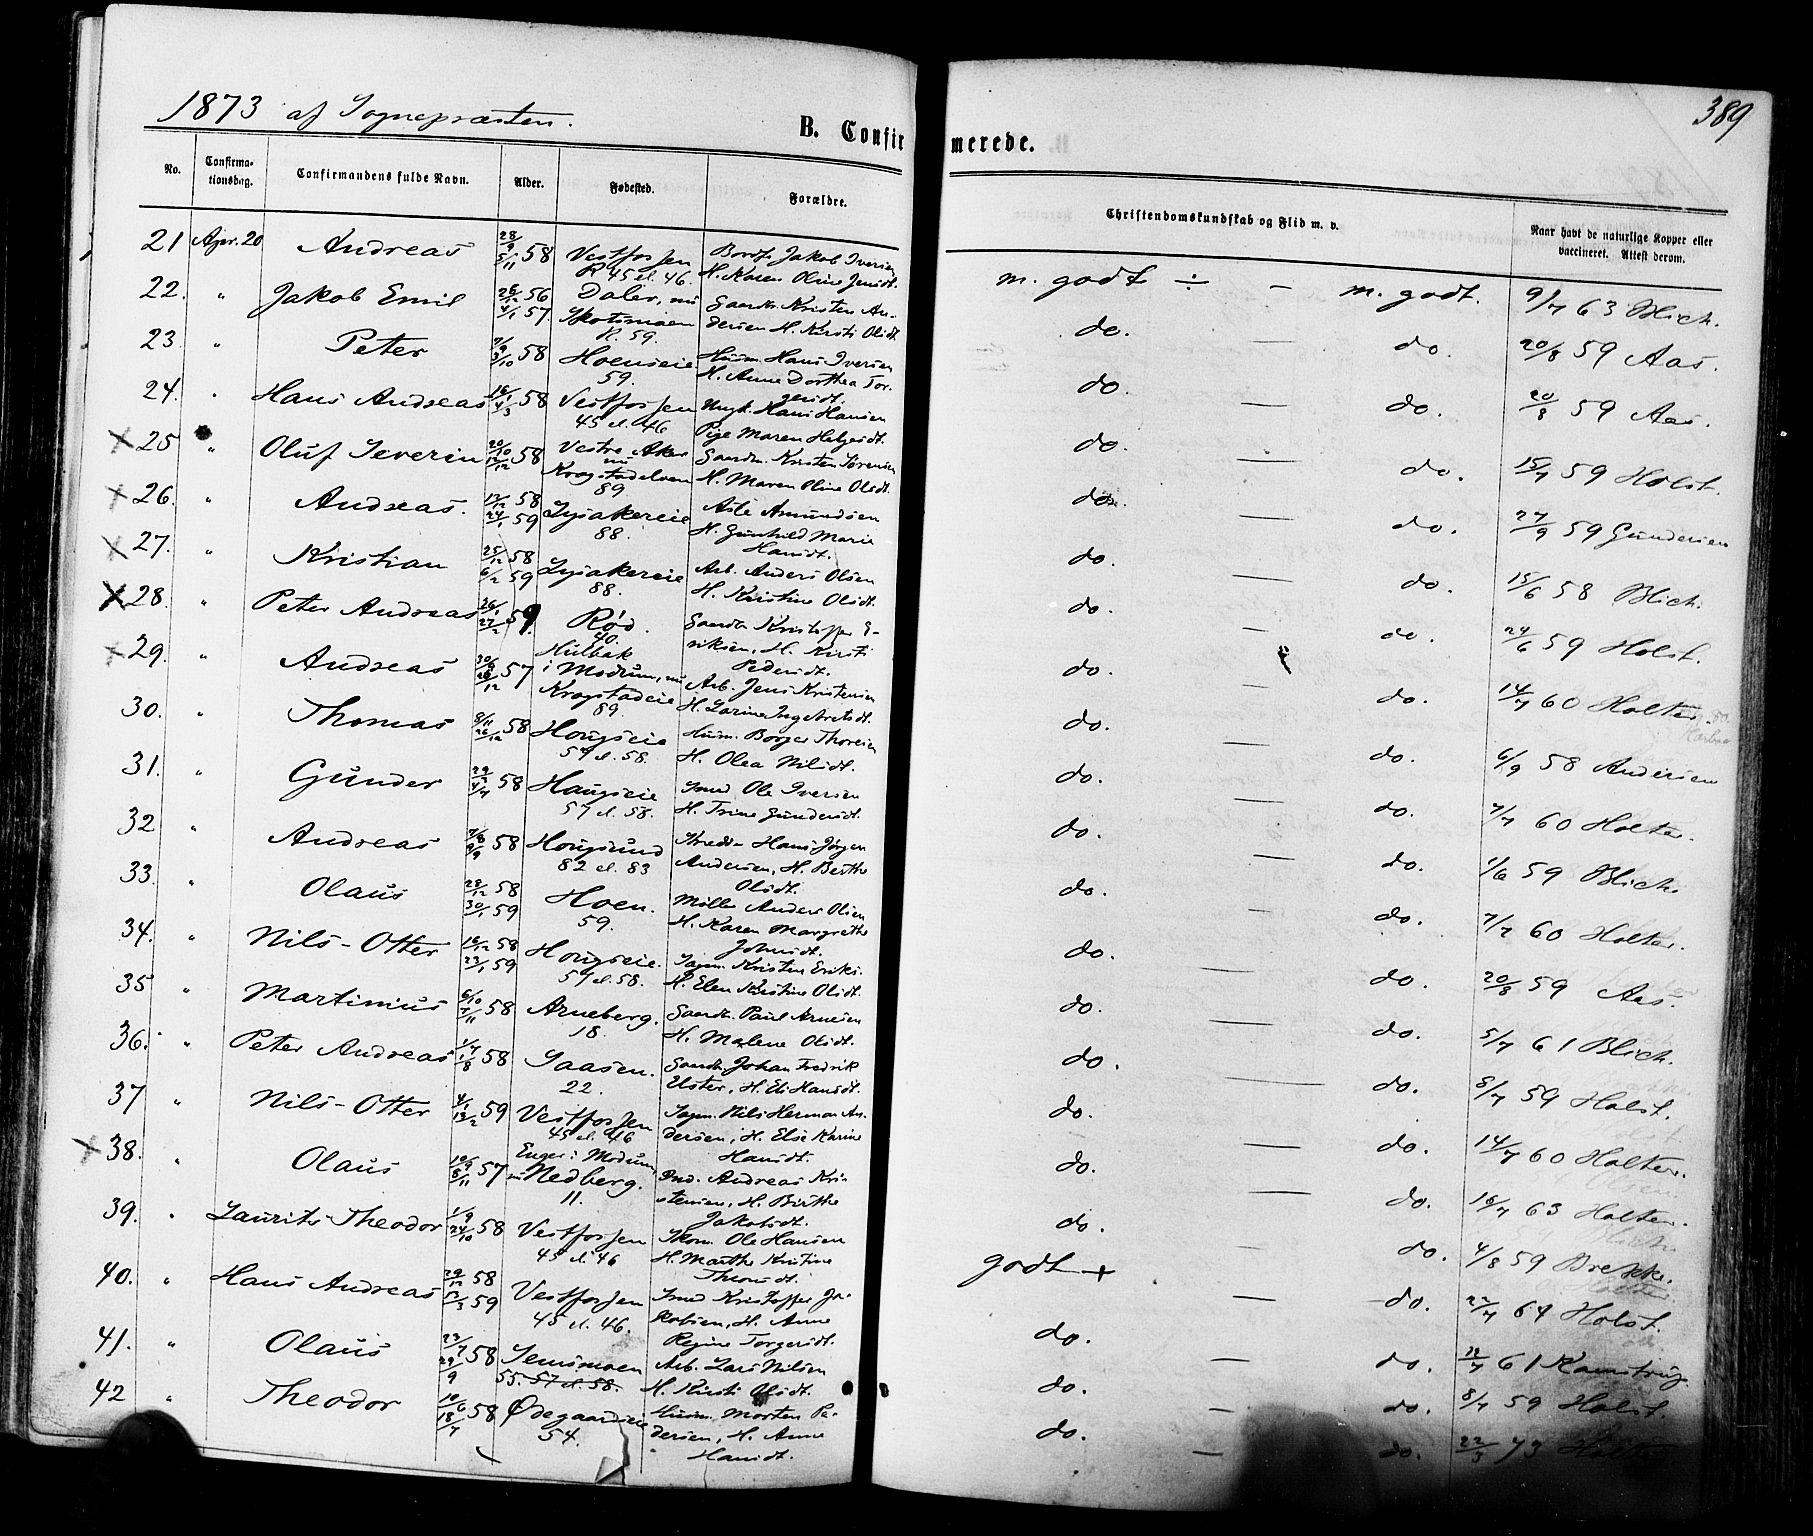 1873 af Sognepræsten.
B. Confirmerede.
389
No.
Confirma-
tionsdag.
Confirmandens fulde Navn.
Alder.
Fødested.
Forældre.
Christendomskundskab og Flid m. v.
Naar havt de naturlige Kopper eller
vaccineret. Attest derom.
21 Apr. 20 Andreas 28/9 5/11 58 Vestfossen R 45 el. 46. Jakob Iversen H. Karen Oline Jensdt. m. godt ÷ – m. godt. 9/7 63 Blich.
22. " Jakob Emil 26/12 56 4/1 57. Daler, nu Skotsmoen R. 59. Gaardb. Kristen Andersen H. Kirsti Olsdt. do. — do. 20/8 59 Aas.
23. " Peter 58 Hoenseie 59. Husm. Hans Iversen H. Anne Dorthea Torgersdt. do. — do. 20/8 59 Aas.
24. " Hans Andreas 16/1 4/3 58 Vestfossen 45 el. 46 Ungk. Hans Hansen Pige Maren Helgesdt. do. — do. 15/7 59 Holst.
25 " Oluf Severin 20/10 12/12 58 Vestre Aker nu Krogstadelven 89 Gaardm. Kristen Sørensen H. Maren Oline Olsdt. do. — do. 27/9 59 Gundersen
26. " Andreas. 17/12 58 24/1 59 Lysakereie 88. Asle Amundsen H. Gunhild Marie Hansdt. do. — do. 15/6 58 Blich.
27. " Kristian 25/12 58 6/2 59 Lysakereie 88. Arb. Anders Olsen H. Kristine Olsdt. do. — do. 24/6 59 Holst.
28. " Peter Andreas 26/1 27/2 59. Rød. 40. Gaardb. Kristoffer Eriksen, H. Kirsti Pedersdt. do. – do. 14/7 60 Holter.
29. " Andreas 57 Hulbak i Modum, nu Krogstadeie 89. Arb. Jens Kristensen H. Larine Ingebretsdt. do. — do. 6/9 58 Andersen
30. " Thomas 8/11 26/12 58 Hougseie 57 el. 58. Husm. Borger Thoresen H. Olea Nilsdt. do. — do. 7/7 60 Holter.
31. " Gunder 58 Haugseie 57 el. 58. Smed Ole Iversen H. Trine Gundersdt. do. — do. 1/6 59 Blich.
32 " Andreas 7/8 9/9 58 Hougsund 82 el. 83 Skrædder Hans Jørgen Andersen, H. Berthe Olsdt. do. – do. 7/7 60 Holter.
33. " Olaus 23/12 58 30/1 59 Hoen. 59. Møller Anders Olsen H. Karen Margrethe Johnsdt. do. — do. 20/8 59 Aas.
34. " Nils-Otter 16/12 58 23/1 59 Hougseie. 57 el. 58. Sagm. Kristen Eriks. H. Elen Kirstine Olsdt. do. — do. 5/7 61 Blich.
35 " Martinius 6/10 7/11 58 Arneberg. 18. Gaardb. Paul Arnesen H. Malene Olsdt. do. — do. 5/7 59 Holst.
36. " Peter Andreas 1/7 1/8 58 Saasen. 22. Gaardb. Johan Fredrik Elster, H. Eli Hansdt. do. — do. 14/7 60 Holter.
37 " Nils-Otter 4/1 13/2 59 Vestfossen 45 el. 46 Sagm. Nils Herman Andersen, H. Else Karine Hansdt. do. — do. 16/7 63 Holter.
38. " Olaus 57 Enger i Modum, nu Nedberg. 11. Ind. Andreas Kristensen, H. Birthe Jakobsdt. do. — do. 4/8 59 Brekke.
39. " Laurits Theodor 1/9 24/10 58 Vestfossen 45 el. 46 Skom. Ole Hansen H. Marthe Kristine Thorsdt. do. – do. 22/7 64 Holst.
40. " Hans Andreas 29/12 58 59 Vestfossen 45 el. 46. Smed Kristoffer Jakobsen, H. Anne Regine Torgersdt. godt + — do. 12/7 61 Kamstrup.
41. " Olaus 23/7 29/9 58 Semsmoen 55. 57 el. 58. Arb. Lars Nilsen H. Kirsti Olsdt. do. – do. 8/7 59 Holst.
42 " Theodor 10/6 18/7 58 Ødegaardseie 54. Husm. Morten Pedersen, H. Anne Hansdt. do. — do. 22/3 73